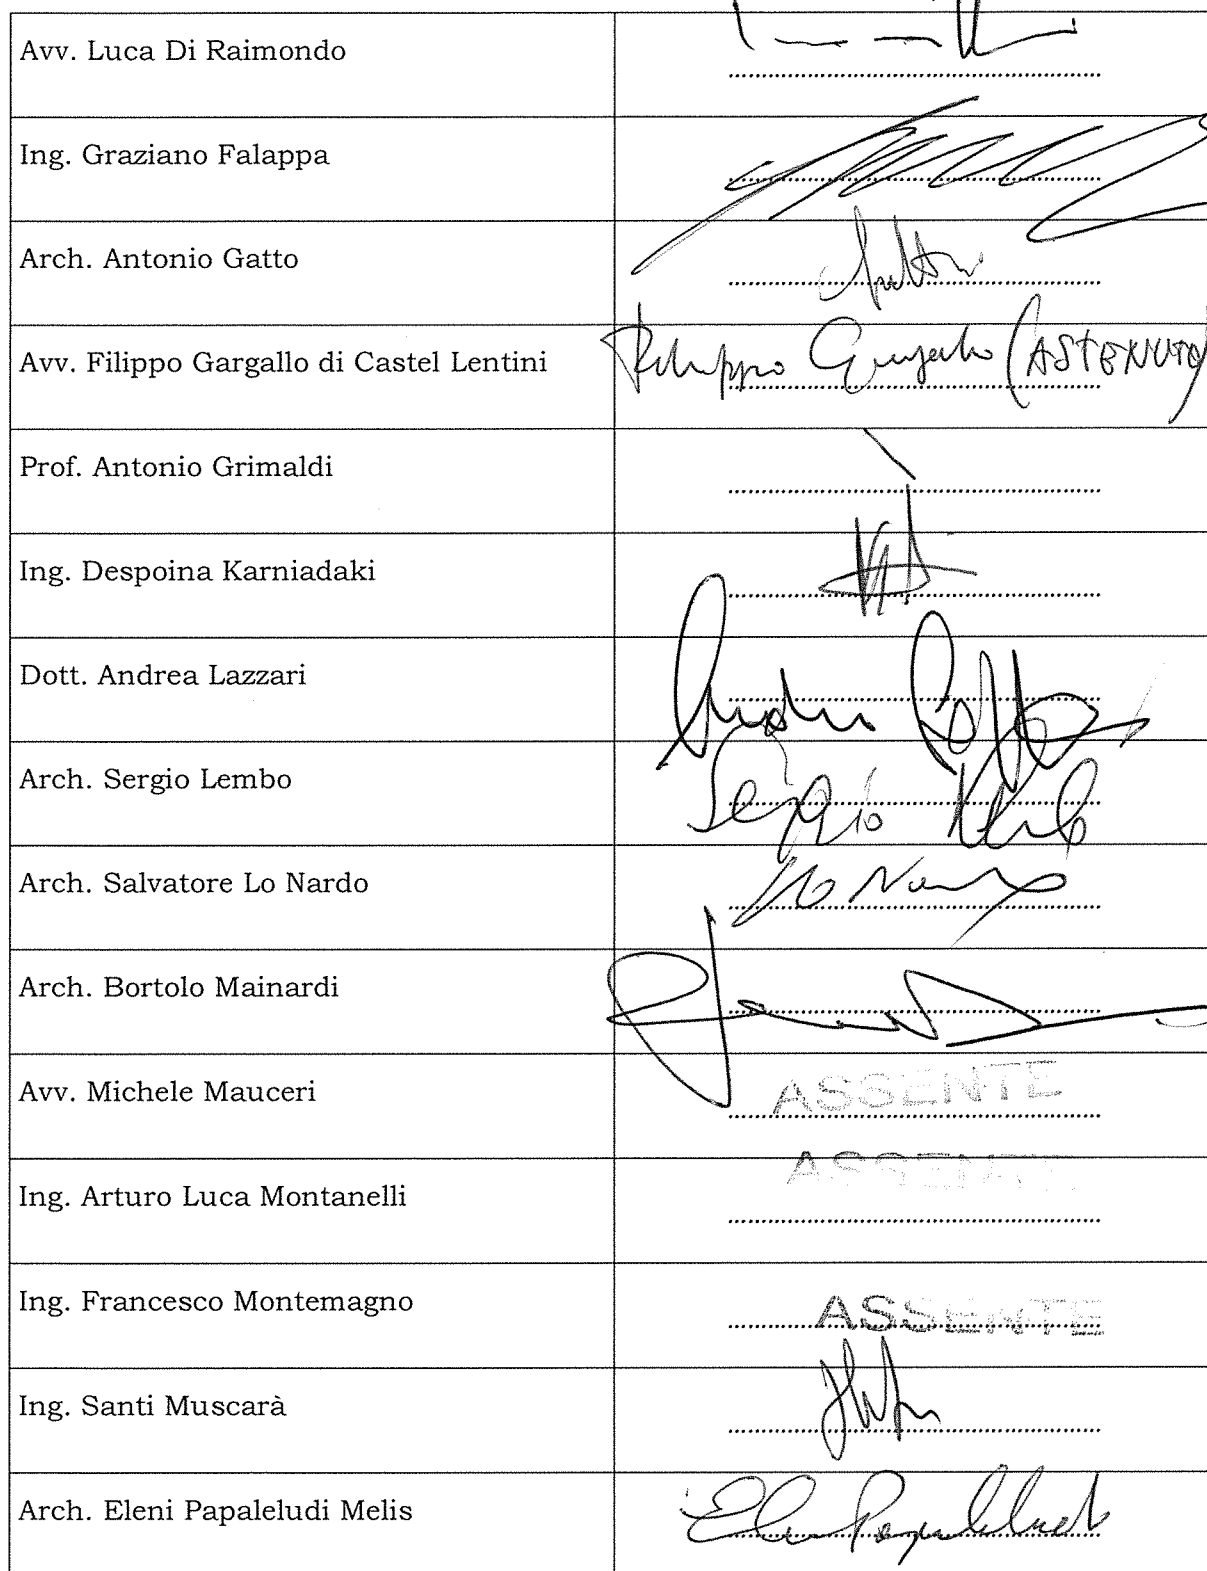 Avv. Luca Di Raimondo
Ing. Graziano Falappa
Arch. Antonio Gatto
Avv. Filippo Gargallo di Castel Lentini
Filippo Gargallo (ASTENUTO)
Prof. Antonio Grimaldi
Ing. Despoina Karniadaki
Dott. Andrea Lazzari
Arch. Sergio Lembo
Sergio Lembo
Arch. Salvatore Lo Nardo
Lo Nardo
Arch. Bortolo Mainardi
Avv. Michele Mauceri
ASSENTE
Ing. Arturo Luca Montanelli
ASSENTE
Ing. Francesco Montemagno
ASSENTE
Ing. Santi Muscarà
Arch. Eleni Papaleludi Melis